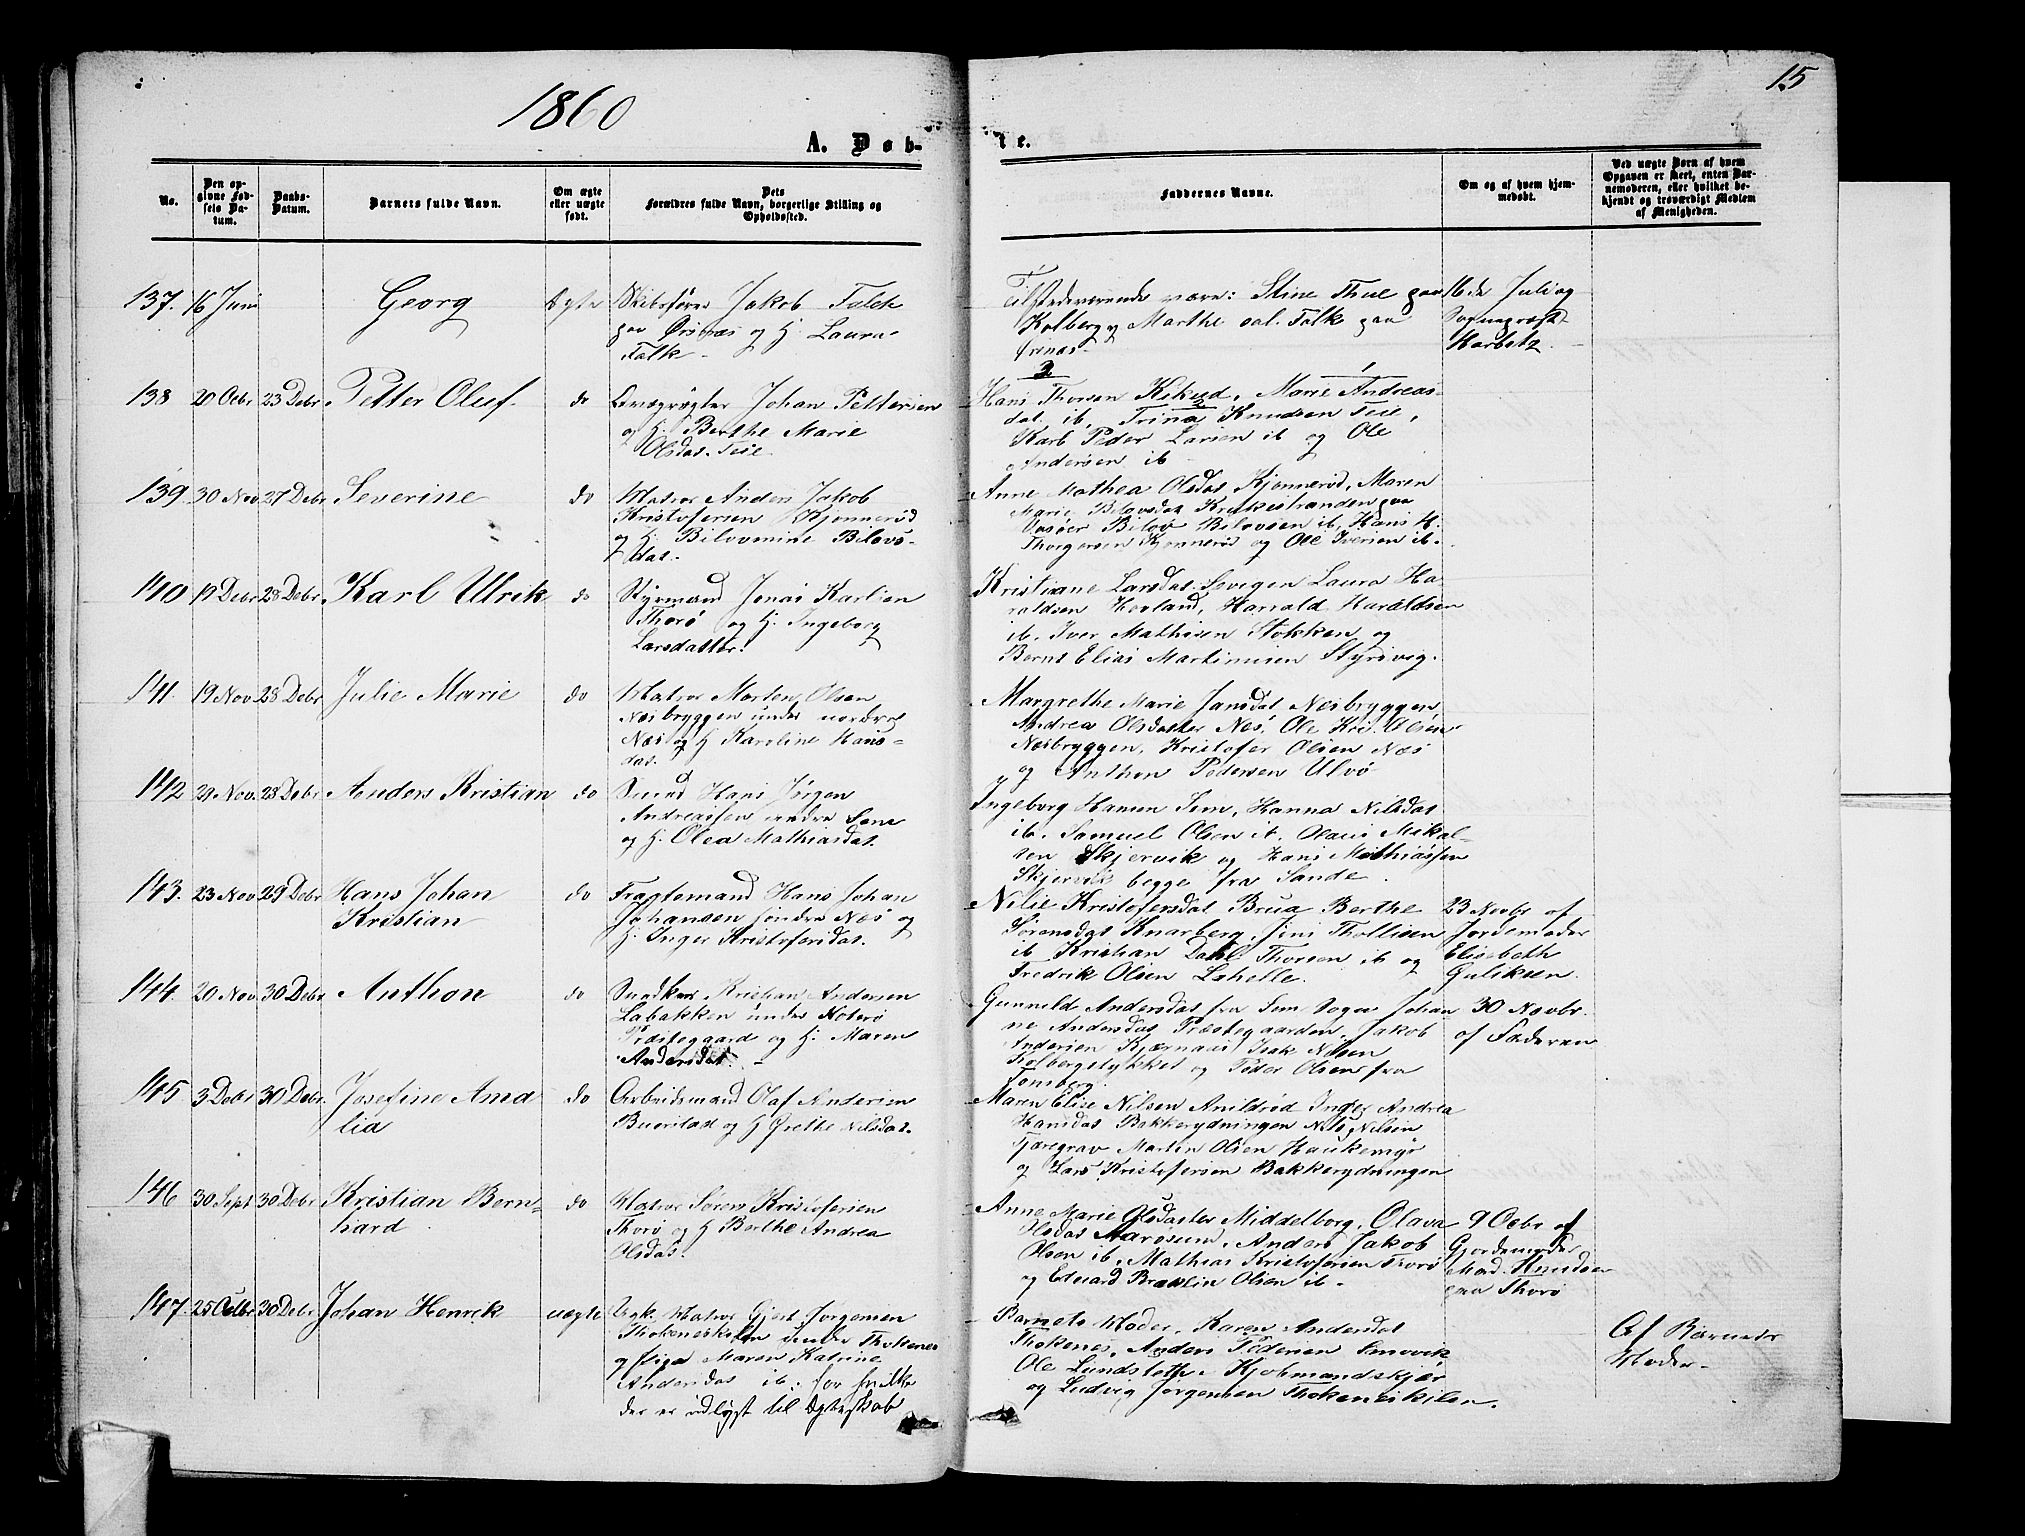 15
1860
A. Døb-
te.
No.
Den op-
givne Fød-
sels Da-
tum.
Daabs-
Datum.
Barnets fulde Navn.
Om ægte
eller uægte
født.
Dets
Forældres fulde Navn, borgerlige Stilling og
Opholdssted.
Faddernes Navne.
Om og af hvem hjem-
medøbt.
Ved uægte Børn af hvem
Opgaven er skeet, enten Bar-
nemoderen, eller hvilket be-
kjendt og troværdigt Medlem
af Menigheden.
137. 16 Juni Georg Ægte
Skibsfører Jakob Falck
paa Ørsnæs og H. Laura
Falk
Tilstedeværende være: Stine Thue paa
Kolberg og Marthe sal. Falk paa
16de Juli og
Sognepræst
Harbitz.
138 20 Ocbr 23 Debr Petter Oluf. do
Johan Pettersen
og H. Berthe Marie
Olsdat. Teie
Hans Thorsen Marie Andreas-
dat. ib. Trina Knudsen Teie,
Karl Peder Larsen ib og Ole
Andersen ib
139. 30 Nov 27 Debr Severine do
Matros Anders Jakob
Kristofersen Kjønnerød
og H. Bilovmine Bilovs-
dat.
Anne Mathea Olsdat Kjønnerød, Maren
Marie Bilovsdat Krukestranden paa
Vasøer Bilov Bilovsen ib. Hans K.
Thorgersen Kjønnerød og Ole Iversen ib.
140 19 Debr 28 Debr. Karl Ulrik do
Styrmand Jonas Karlsen
Thorø og H. Ingeborg
Larsdatter.
Kristiane Larsdat. Laura Ha-
raldsen Hovland, Harrald Haraldsen
ib. Iver Mathisen Stokken og
Bernt Elias Martinnisen Styrsvig.
141. 19 Nov 28 Debr Julie Marie do
Matros Morten Olsen
Næsbryggen under nordre
Næs og H Karoline Hans-
dat.
Margrethe Marie Jansdat Næsbryggen
Andrea Olsdatter Næs, Ole Kris. Olsen
Næsbryggen, Kristofer Olsen Næs
og Anthon Pedersen Ulvø
142 29 Nov. 28 Debr Anders Kristian do
Smed Hans Jørgen
Andreassen søndre Sem
og H. Olea Mathiasdat.
Ingeborg Hansen Sem, Hanna Nilsdat
ib. Samuel Olsen ib. Olaus Mikal-
sen Skjervik og Hans Mathiassen
Skjervik begge fra Sande.
143. 23 Nov 29 Debr Hans Johan
Kristian do
Fragtemand Hans Johan
Johansen søndre Næs og
H. Inger Kristofersdat.
Nilie Kristofersdat Brua Berthe
Sørensdat Knarberg, Jens Thollisen
ib Kristian Dahl Thorsen ib og
Fredrik Olsen Lahelle.
23 Novbr af
Jordemoder
Elisabeth
Guliksen.
144. 20 Nov. 30 Debr Anthon do
Kristian Andersen
Labakken under Noterø
Præstegaard og H. Maren
Andersdat.
Gunnild Andersdat fra Sem Sogn Johan-
ne Andersdat Præstegaarden, Jakob
Andersen Kjærnaas Isak Nilsen
Kolbergstykket og Peder Olsen fra
Tønsberg.
30 Novbr.
af Faderen
145 3 Debr 30 Debr. Josefine Ama
lia do
Arbeidsmand Olaf Andersen
Buerstad og H Grethe Nilsdat.
Maren Elise Nilsen Arnildrød Inger Andrea
Hansdat Bakkerydningen Nils Nilsen
Tjæregrav Martin Olsen Haukemyr
og Lars Kristofersen Bakkerydningen
146 30 Sept 30 Debr Kristian Bern-
hard do
Matros Søren Kristofersen
Thorø og H Berthe Andrea
Olsdat.
Anne Marie Olsdatter Middelborg. Olava
Olsdat Aarøsund, Anders Jakob
Olsen ib, Mathias Kristofersen Thorø
og Eduard Olsen ib
9 Ocbr af
Gjordemoder
Mad. Knudsen
paa Thorø
147. 25 Octbr 30 Debr Johan Henrik uægte
Ugk. Matros Gjert Jørgensen
Thokeneskilen under Thokenes
og Pige Maren Katrine
Andersdat ib: for hvilke
der er udlyst til Ægteskab
Barnets Moder. Karen Andersdat
Thokenes, Anders Pedersen Smvik
Ole Lundsteth. Kjøbmandskjær
og Ludvig Jørgensen Thokeneskilen.
Af Barnets
Moder